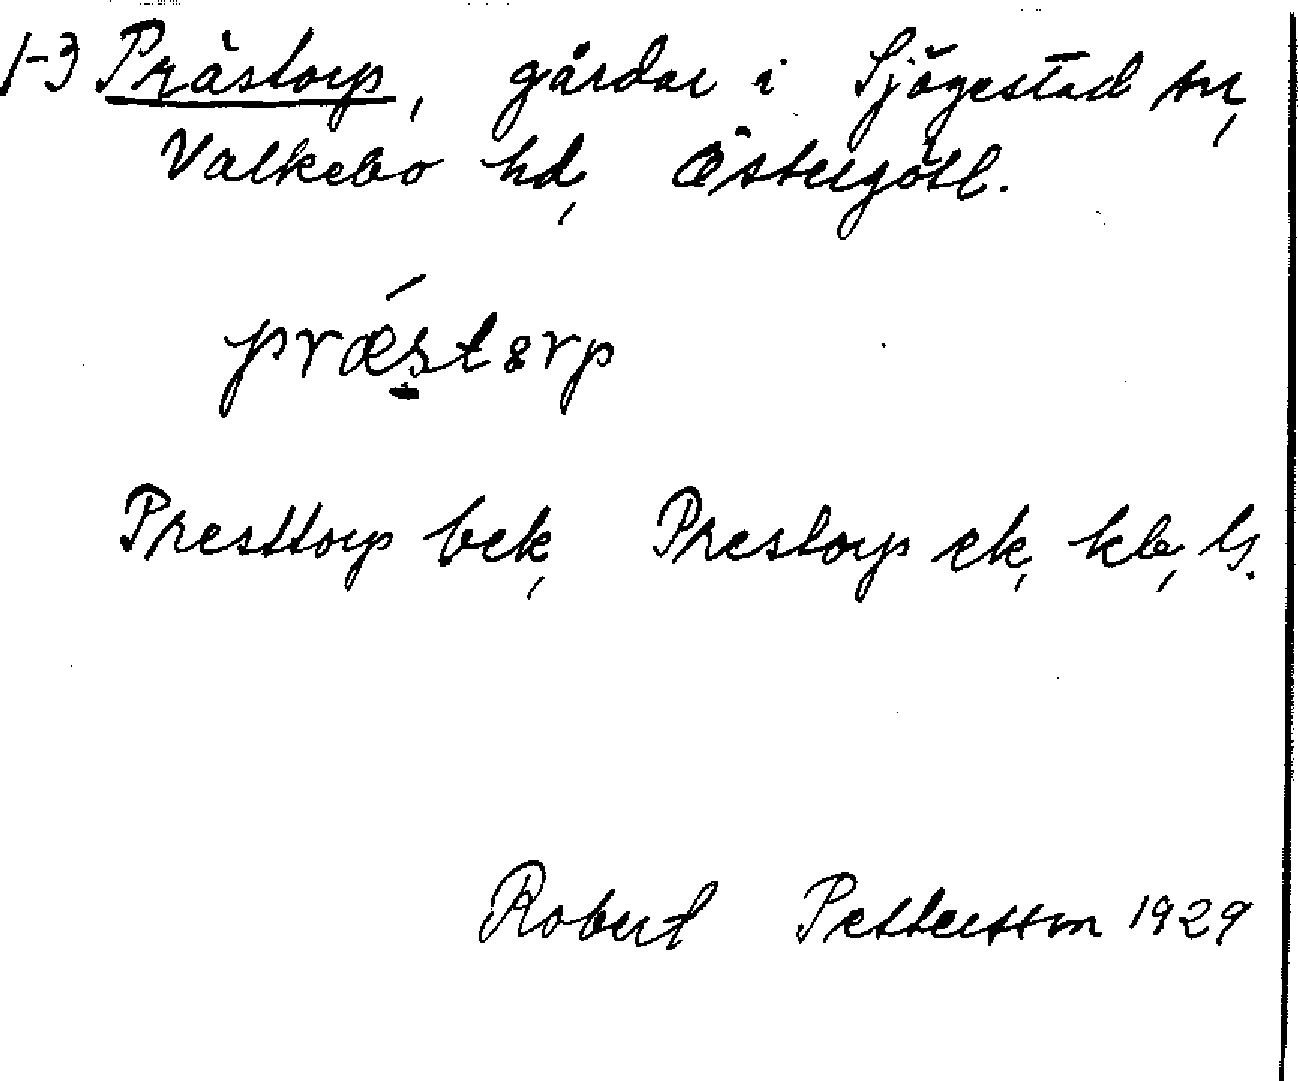 1-3 Prästorp, gårdar i Sjögestad sn,
Valkebo hd, Östergötl.
præ´stərp
Presttorp bek, Prestorp ek, kb, ly.
Robert Pettersson 1929